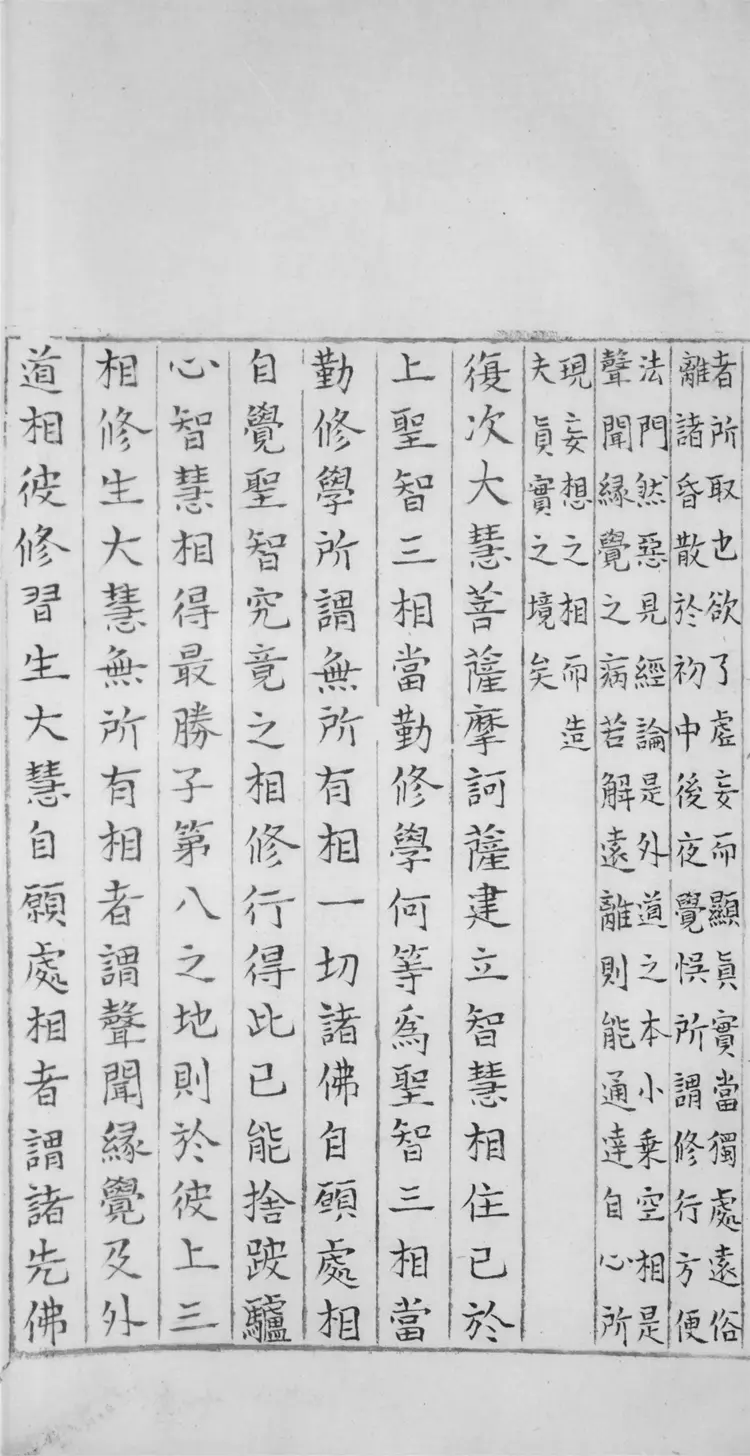 者所取也欲了虛妄而顯眞實當獨處遠俗
離諸昏散於初中後夜覺悞所謂修行方便
法門然惡見經論是外道之本小乗空相是
聲聞縁覺之病苦解遠離則能通達自心所
現妄想之相而造
夫眞實之境矣
復次大慧菩薩摩訶薩建立智慧相住已於
上聖智三相當勤修學何等爲聖智三相當
勤修學所謂無所有相一切諸佛自願處相
自覺聖智究竟之相修行得此已能捨跛驢
心智慧相得最勝子第八之地則於彼上三
相修生大慧無所有相者謂聲聞縁覺及外
道相彼修習生大慧自願處相者謂諸先佛